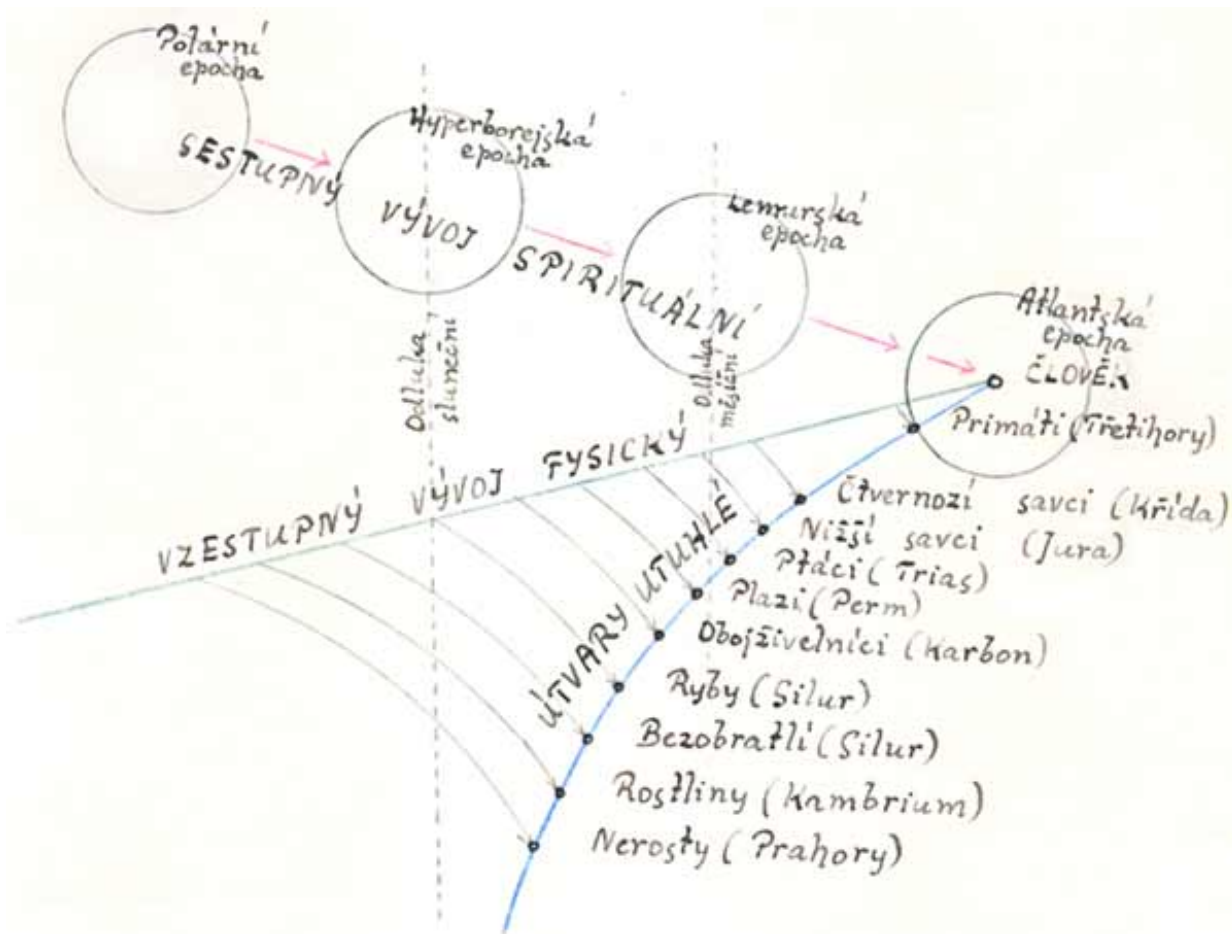 Polární
epocha
Hyperborejská
epocha
Lemurská
epocha
Atlantská
epocha
SESTUPNÝ
VÝVOJ
SPIRITUÁLNÍ
ČLOVĚK
Odluka
sluneční
Odluka
měsíční
VZESTUPNÝ VÝVOJ FYSICKÝ
ÚTVARY UTUHLÉ
Primáti (Třetihory)
Čtvernozí savci (Křída)
Nižší savci (Jura)
Ptáci (Trias)
Plazi (Perm)
Obojživelníci (Karbon)
Ryby (Silur)
Bezobratlí (Silur)
Rostliny (Kambrium)
Nerosty (Prahory)